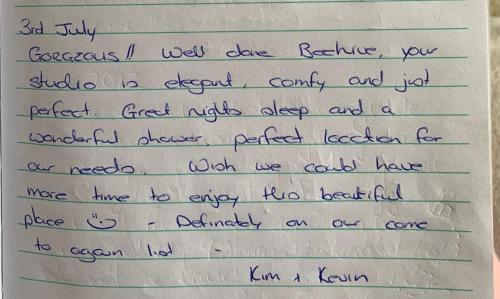 3rd July
GORGEOUS!! Well done Beehive, your
studio is elegant, comfy and just
perfect. Great nights sleep and a
wonderful shower, perfect location for
our needs. Wish we could have
more time to enjoy this beautiful
place - Definately on our come
to again list -
Kim + Kevin